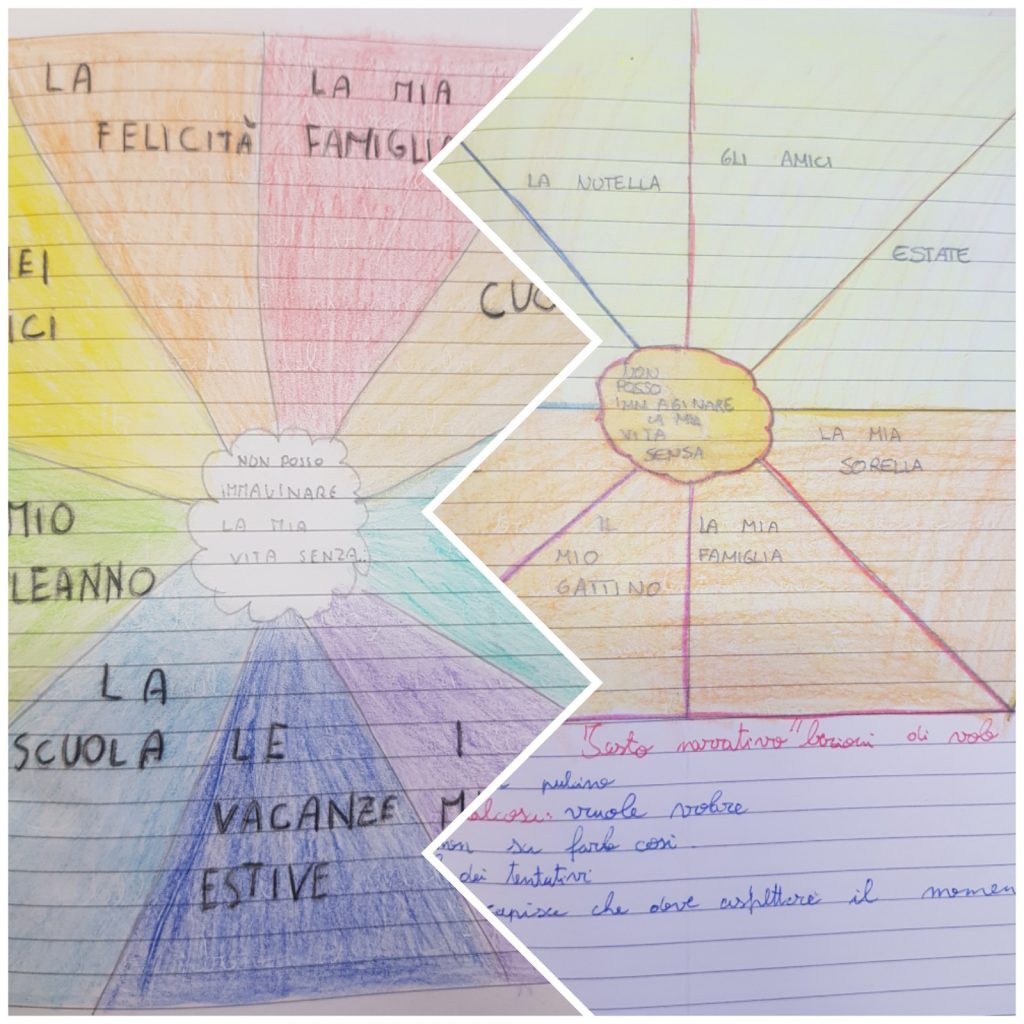 LA
FELICITÀ
LA MIA
FAMIGLIA
EI
ICI
CUO
NON POSSO
IMMAGINARE
LA MIA
VITA SENZA..
MIO
LEANNO
LA
SCUOLA
LE
VACANZE
ESTIVE
I
MI
LA NUTELLA
GLI AMICI
ESTATE
NON
POSSO
IMMAGINARE
LA MIA
VITA
SENSA
LA MIA
SORELLA
IL
MIO
GATTINO
LA MIA
FAMIGLIA
"Testo narrativo" lezioni di volo
pulcino
alcosa: vuole volare
non sa farlo così.
dei tentativi
capisce che deve aspettare il momen